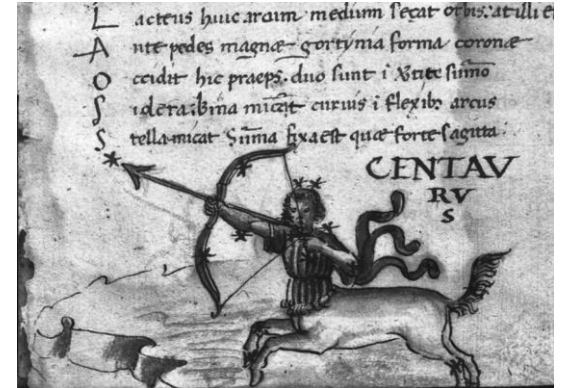 Lacteus huic arcum medium secat orbis: at illi
Ante pedes magnæ gortynia forma coronæ
Occidit hic præps. duo sunt i
Sidera: bina curuis i flexibꝫ arcus
Stella micat Sũma fixa est quæ forte sagitta.
CENTAV
RV
S